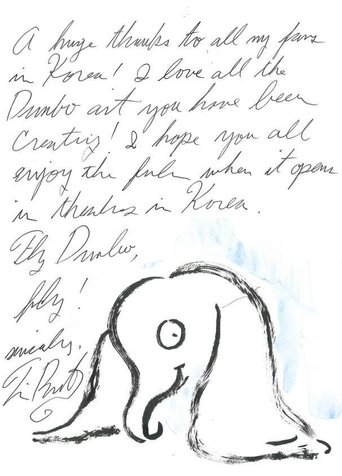 A huge thanks to all my fans
in Korea! I love all the
Dumbo art you have been
creating! I hope you all
enjoy the film when it opens
in theatres in Korea.
Fly Dumbo,
fly!
sincerely,
Tim Burton